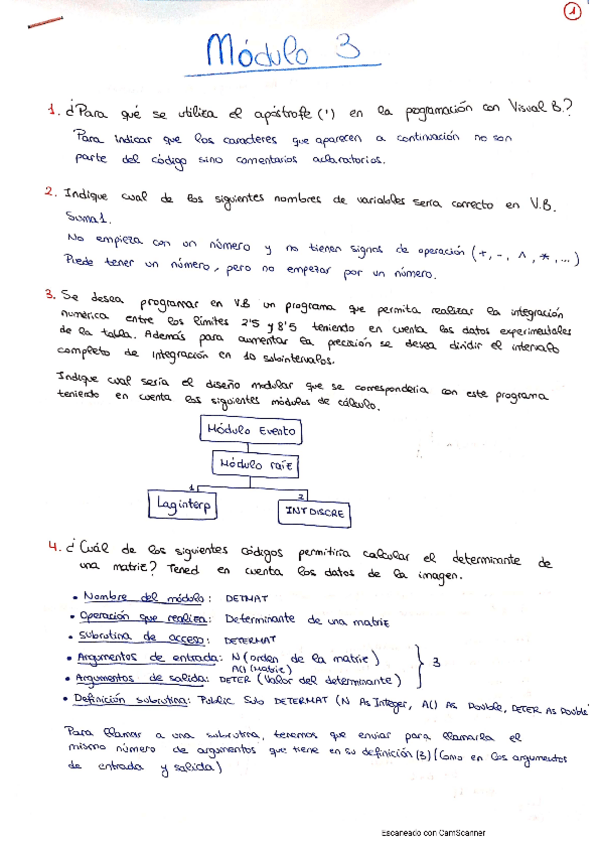 1
Módulo 3
1. ¿Para qué se utiliza el apóstrofe (') en la programación con Visual B.?
Para indicar que los caracteres que aparecen a continuación no son
parte del código sino comentarios aclaratorios.
2. Indique cual de los siguientes nombres de variables sería correcto en V.B.
Suma1.
No empieza con un número y no tienen signos de operación (+, -, ^, *, ...)
Puede tener un número, pero no empezar por un número.
3. Se desea programar en V.B un programa que permita realizar la integración
numérica entre los límites 2'5 y 8'5 teniendo en cuenta los datos experimentales
de la tabla. Además para aumentar la precisión se desea dividir el intervalo
completo de integración en 10 subintervalos.
Indique cual sería el diseño modular que se correspondería con este programa
teniendo en cuenta los siguientes módulos de cálculo.
Módulo Evento
Módulo raíz
1 2
Laginterp INTDISCRE
4. ¿Cuál de los siguientes códigos permitiría calcular el determinante de
una matriz? Tened en cuenta los datos de la imagen.
• Nombre del módulo: DETMAT
• Operación que realiza: Determinante de una matriz
• Subrutina de acceso: DETERMAT
• Argumentos de entrada: N (orden de la matriz)
A() (Matriz)
3
• Argumentos de salida: DETER (Valor del determinante)
• Definición subrutina: Public Sub DETERMAT (N As Integer, A() As Double, DETER As Double
Para llamar a una subrutina, tenemos que enviar para llamarla el
mismo número de argumentos que tiene en su definición (3) (Como en los argumentos
de entrada y salida)
Escaneado con CamScanner